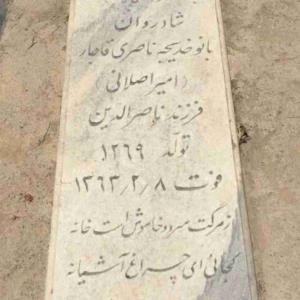 شادروان
بانو خدیجه ناصری قاجار
(امیراصلانی)
فرزند ناصرالدین
تولد ۱۲۶۹
فوت ۱۳۶۳/۲/۸
زمرگت سرد و خاموش است خانه
کجائی ای چراغ آشیانه